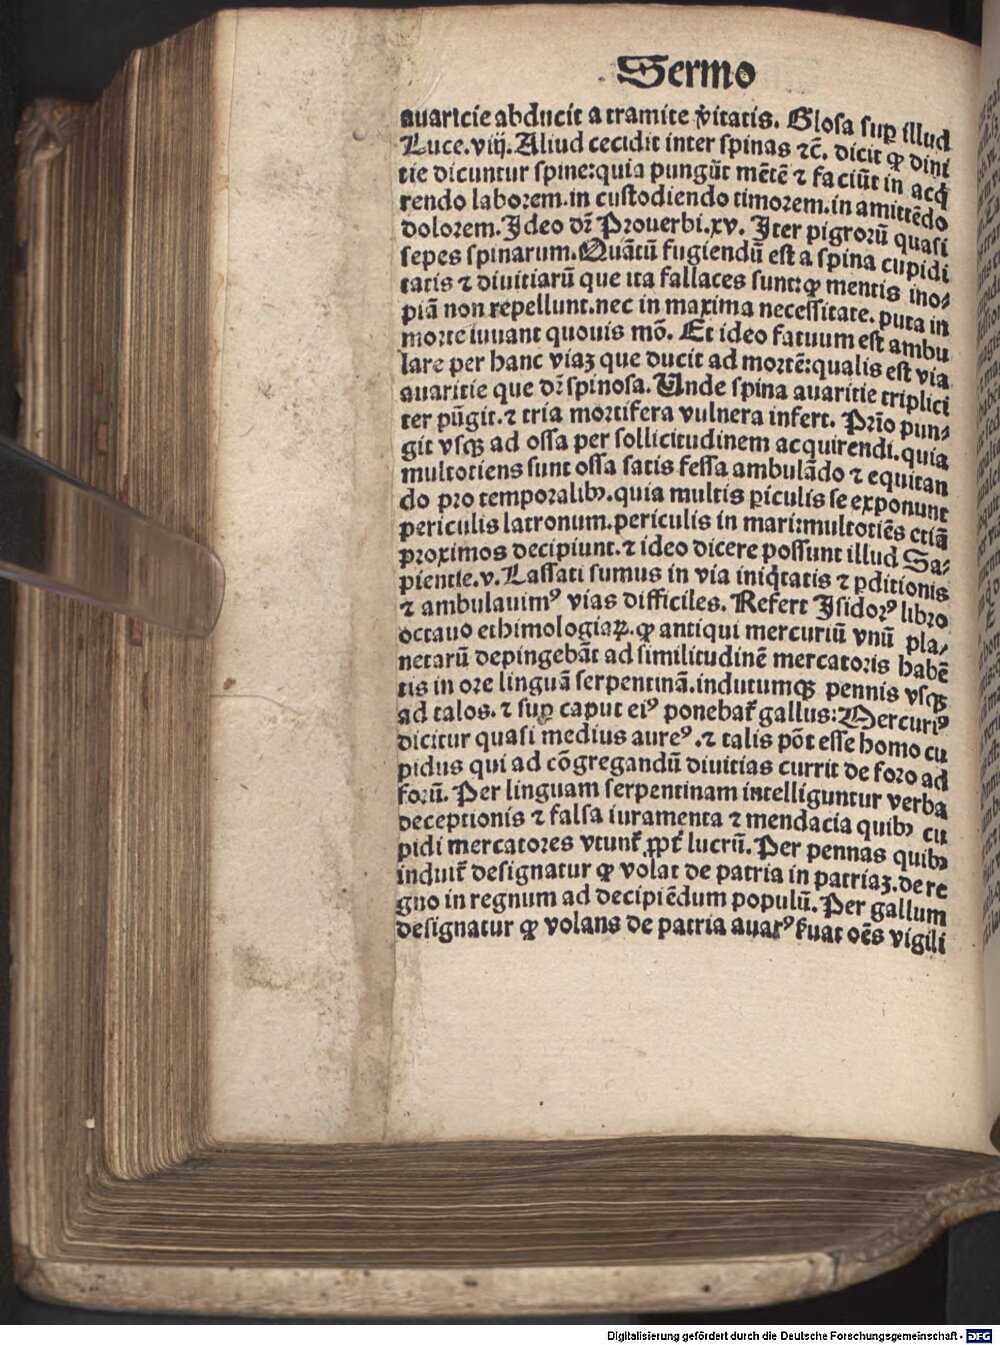 Sermo
auaricie abducit a tramite v̓itatis. Glosa suꝑ illud
Luce.viij. Aliud cecidit inter spinas ⁊c̄. dicit ꝙ diui
tie dicuntur spine:quia pungūt mētē ⁊ faciūt in acq̄
rendo laborem.in custodiendo timorem.in amittēdo
dolorem. Ideo dr̄ Prouerbi.xv. Iter pigrorū quasi
sepes spinarum. Quātū fugiendū est a spina cupidi
tatis ⁊ diuitiarū que ita fallaces sunt:ꝙ mentis ino⸗
piā non repellunt.nec in maxima necessitate. puta in
morte iuuant quouis mō. Et ideo fatuum est ambu
lare per hanc viaꝫ que ducit ad mortē:qualis est via
auaritie que dr̄ spinosa. Unde spina auaritie triplici
ter pūgit.⁊ tria mortifera vulnera infert. Prīo pun⸗
git vsqꝫ ad ossa per sollicitudinem acquirendi.quia
multotiens sunt ossa satis fessa ambulādo ⁊ equitan
do pro temporalibꝰ.quia multis ꝑiculis se exponunt
periculis latronum.periculis in mari:multotiēs etiā
proximos decipiunt.⁊ ideo dicere possunt illud Sa⸗
pientie.v. Lassati sumus in via iniq̄tatis ⁊ ꝑditionis
⁊ ambulauimꝰ vias difficiles. Refert Isidorꝰ libro
octauo ethimologiaꝝ.ꝙ antiqui mercuriū vnū pla⸗
netarū depingebāt ad similitudinē mercatoris habē
tis in ore linguā serpentinā.indutumqꝫ pennis vsqꝫ
ad talos.⁊ suꝑ caput eiꝰ ponebat̄ gallus:Mercuriꝰ
dicitur quasi medius aureꝰ.⁊ talis pōt esse homo cu
pidus qui ad cōgregandū diuitias currit de foro ad
forū. Per linguam serpentinam intelliguntur verba
deceptionis ⁊ falsa iuramenta ⁊ mendacia quibꝰ cu
pidi mercatores vtunt̄ ꝓpt̄ lucrū. Per pennas quibꝰ
induit̄ designatur ꝙ volat de patria in patriaꝫ.de re
gno in regnum ad decipiēdum populū. Per gallum
designatur ꝙ volans de patria auarꝰ s̓uat oēs vigili
Digitalisierung gefördert durch die Deutsche Forschungsgemeinschaft - DFG